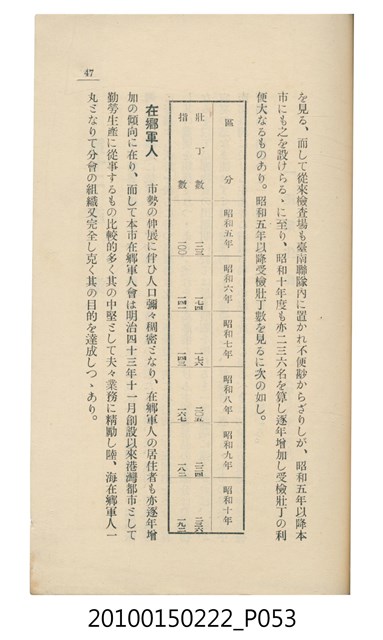 を見る、而して從來檢查場も臺南聯隊內に置かれ不便尠からざりしが、昭和五年以降本
市にも之を設けらるゝに至り、昭和十年度も亦二三六名を算し逐年增加し受檢壯丁の利
便大なるものあり。昭和五年以降受檢壯丁數を見るに次の如し。
區分 昭和五年 昭和六年 昭和七年 昭和八年 昭和九年 昭和十年
壯丁數 一七四 一七六 二〇五 二二四 二三六
指數 一〇〇 一四一 一四三 一六七 一八二 一九二
在鄉軍人 市勢の伸展に伴ひ人口彌々稠密となり、在鄉軍人の居住者も亦逐年增
加の傾向に在り、而して本市在鄉軍人會は明治四十三年十一月創設以來港灣都市として
勤勞生產に從事するもの比較的多く其の中堅として夫々業務に精勵し陸、海在鄉軍人一
丸となりて分會の組織又完全し克く其の目的を達成しつゝあり。
47
20100150222_P053